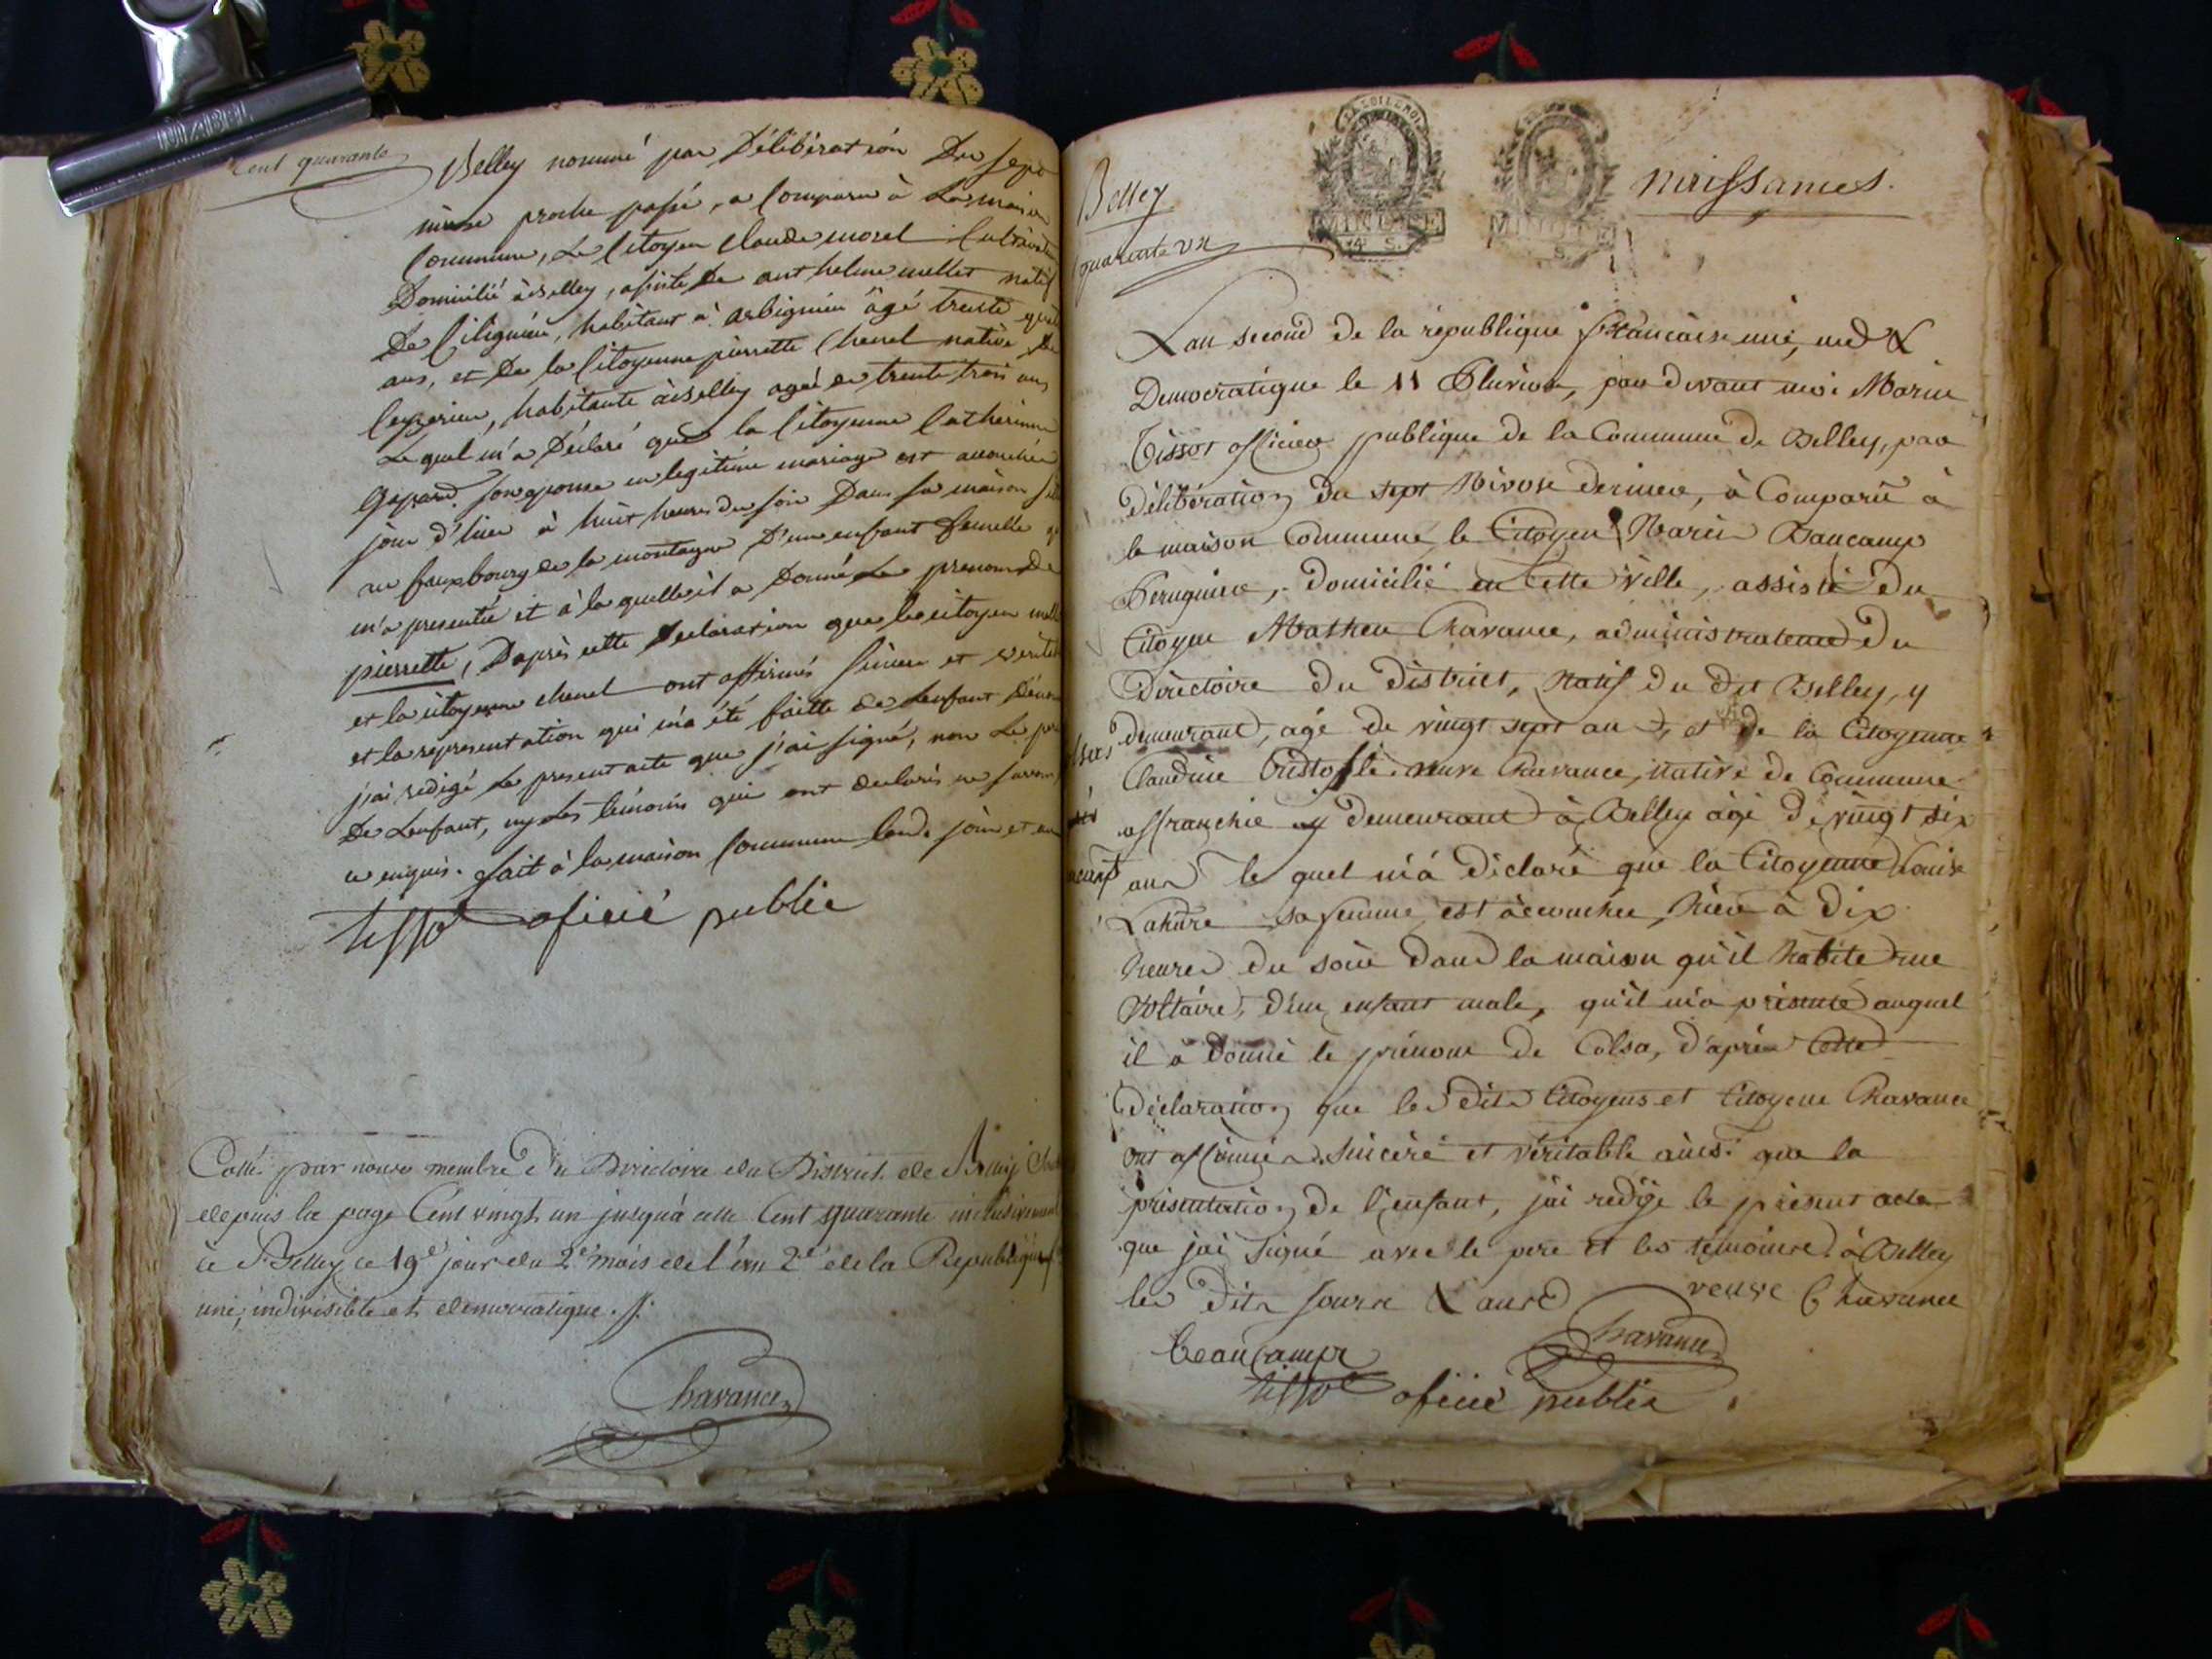 Cent quarante
Belley nommé par Délibération Du sept
nivose proche passé, a Comparu à La maison
Commune, Le Citoyen Claude morel Cultivateur
Domicilié à Belley, assisté De anthelme mellet natif
De Citignieu, habitant à arbignieu âgé trente
ans, et De la Citoyenne pierrette Chenel native de
Ceyzerieu, habitante à Belley agée de trente trois ans
Le quel m'a Déclaré que la Citoyenne Catherinne
Gaspard son epouse en legitime mariage est accouchée
jour d'hier à huit heures du soir Dans sa maison
au fauxbourg de la montagne D'un enfant femelle
m'a presentée et à la quelle il a Donné Le prenom de
pierrette, D'après cette Declaration que le citoyen
et la citoyenne chenel ont affirmés sincere et
et la representation qui m'a été faitte de Lenfant
j'ai redigé Le present acte que j'ai signé, non Le
De Lenfant, ny Les témoins qui ont declarés ne savoir
ce enquis. fait à la maison Commune Les d. jour et an
tissot oficié public
Cotté par nous membre du Directoire du District de
depuis la page Cent vingt un jusqu'à celle Cent quarante inclusivement
à Belley ce 19e jour du 2e mois de l'an 2e de la Republique
une, indivisible et democratique.
Chavance
Belley
quarante un
MINUTE
4 S.
MINUTE
S.
naissances.
Lan second de la république francaise une, ind &
Democratique le 11 Pluviose, par devant moi Marin
Tissot officier publique de la Commune de Belley, par
délibération du sept Nivose dernier, à Comparu à
la maison Commune le Citoyen Marin Baucamp
Peruquier, domicilié en Cette ville, assisté du
Citoyen Mathieu Chavance, administrateur du
Directoire du District, Natif du dit Belley, y
demeurant, agé de vingt sept ans, et de la Citoyenne
Claudine veuve Chavance, native de Commune
affranchie y demeurant à Belley âgé de vingt six
ans le quel m'à déclaré que la Citoyenne Louise
sa femme est àccouchée hier à dix
heures du soir dans la maison qu'il habite rue
Voltaire, d'un enfant male, qu'il m'a présenté auquel
il à donné le prénom de d'après Cette
déclaration que les dits Citoyens et Citoyene Chavance
ont affirmés sincère et véritable ainsi que la
présentation de l'enfant, j'ai redigé le présent acte
que j'ai signé avec le pere et les temoins à Belley
les dits jour & an
veuve Chavance
Beaucamp
Chavance
tissot oficié public